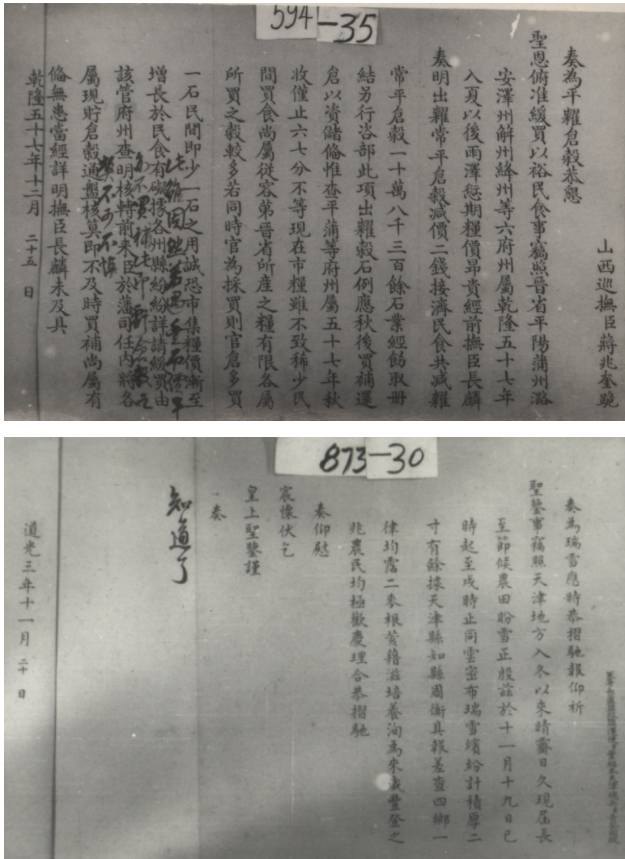 594-35
山西巡撫臣蔣兆奎跪
奏為平糶倉穀恭懇
聖恩俯准緩買以裕民食事竊照晉省平陽蒲州潞
安澤州解州絳州等六府州屬乾隆五十七年
入夏以後雨澤愆期糧價昂貴經前撫臣長麟
奏明出糶常平倉穀減價二錢接濟民食共減糶
常平倉穀一十萬八千三百餘石業經飭取冊
結另行咨部此項出糶穀石例應秋後買補還
倉以資儲備惟查平蒲等府州屬五十七年秋
收僅止六七分不等現在市糧雖不致稀少民
間買食尚屬從容第晉省所產之糧有限各屬
所買之穀較多若同時官為採買則官倉多買
一石民間即少一石之用誠恐市集糧價漸至
增長於民食有礙據各州縣紛紛詳請緩買由
該管府州查明核轉前來臣於藩司任內將各
屬現貯倉穀通盤核算即不及時買補尚屬有
備無患當經詳明撫臣長麟未及具
乾隆五十七年十二月 二十五 日
873-30
奏為瑞雪應時恭摺馳報仰祈
聖鑒事竊照天津地方入冬以來晴霽日久現屆長
至節候農田盼雪正殷茲於十一月十九日巳
時起至戌時止同雲密布瑞雪繽紛計積厚二
寸有餘據天津縣知縣周衡具報差查四鄉一
律均霑二麥根荄藉滋培養洵為來歲豐登之
兆農民均極歡慶理合恭摺馳
奏仰慰
宸懷伏乞
皇上聖鑒謹
奏
知道了
道光三年十一月 二十 日